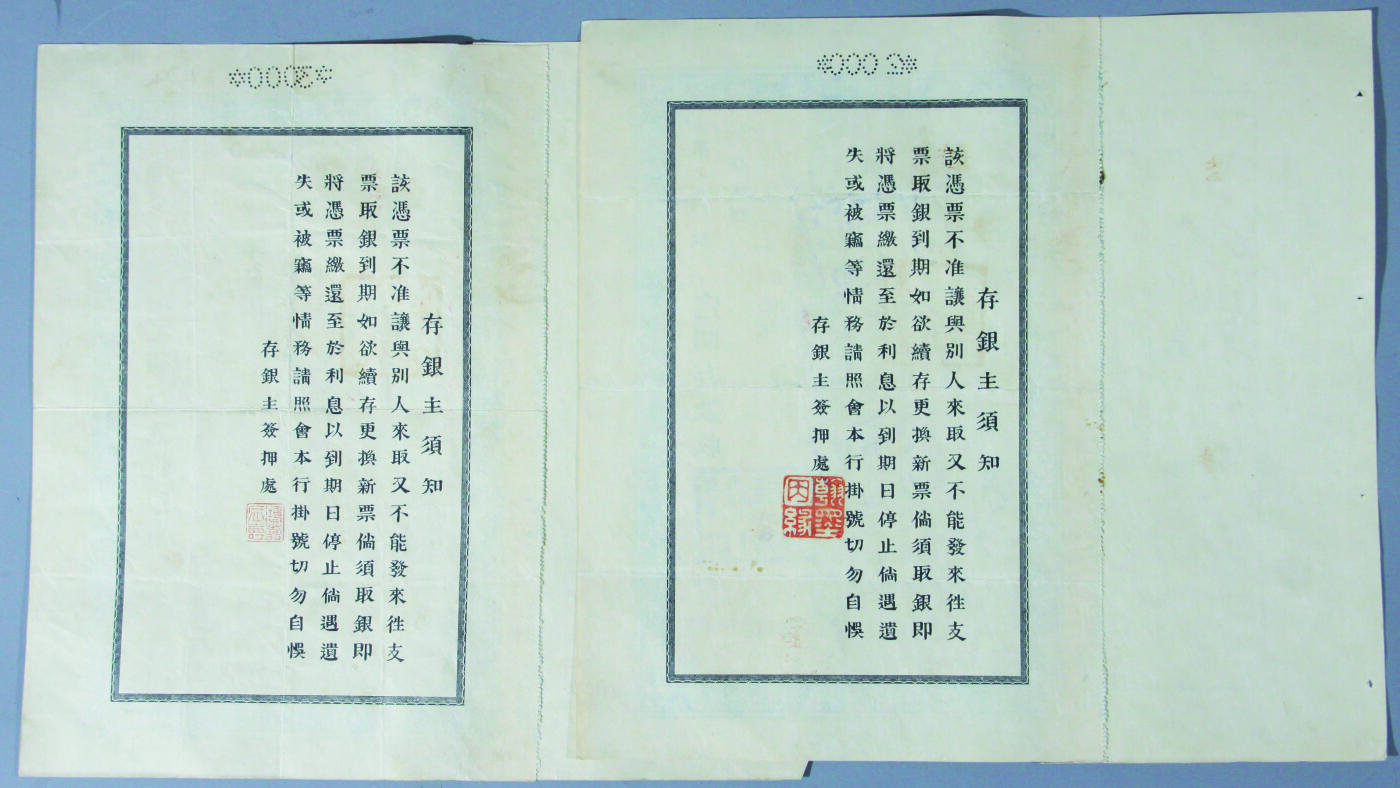 *2000*
存銀主須知
該憑票不准讓與別人來取又不能發來徃支
票取銀到期如欲續存更換新票倘須取銀即
將憑票繳還至於利息以到期日停止倘遇遺
失或被竊等情務請照會本行掛號切勿自悞
存銀主簽押處
翰墨
因緣
*3000*
存銀主須知
該憑票不准讓與別人來取又不能發來徃支
票取銀到期如欲續存更換新票倘須取銀即
將憑票繳還至於利息以到期日停止倘遇遺
失或被竊等情務請照會本行掛號切勿自悞
存銀主簽押處